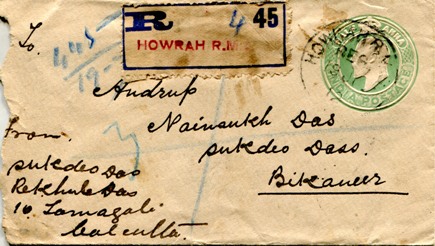 R 4 45
HOWRAH R.M
To,
445
HOWRAH R.M
INDIA POSTAGE
Andrup
Nainsukh Das
Sukdeo Dass.
Bikaneer
From,
Sukdeo Das
Rekhub Das
10
Calcutta.